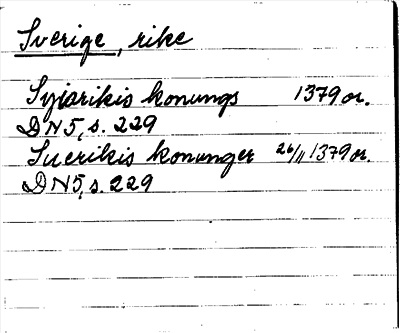 Sverige, rike
Syiarikis konungs 1379 or.
DN 5, s. 229
Suerikis konunger 26/11 1379 or.
DN 5, s. 229